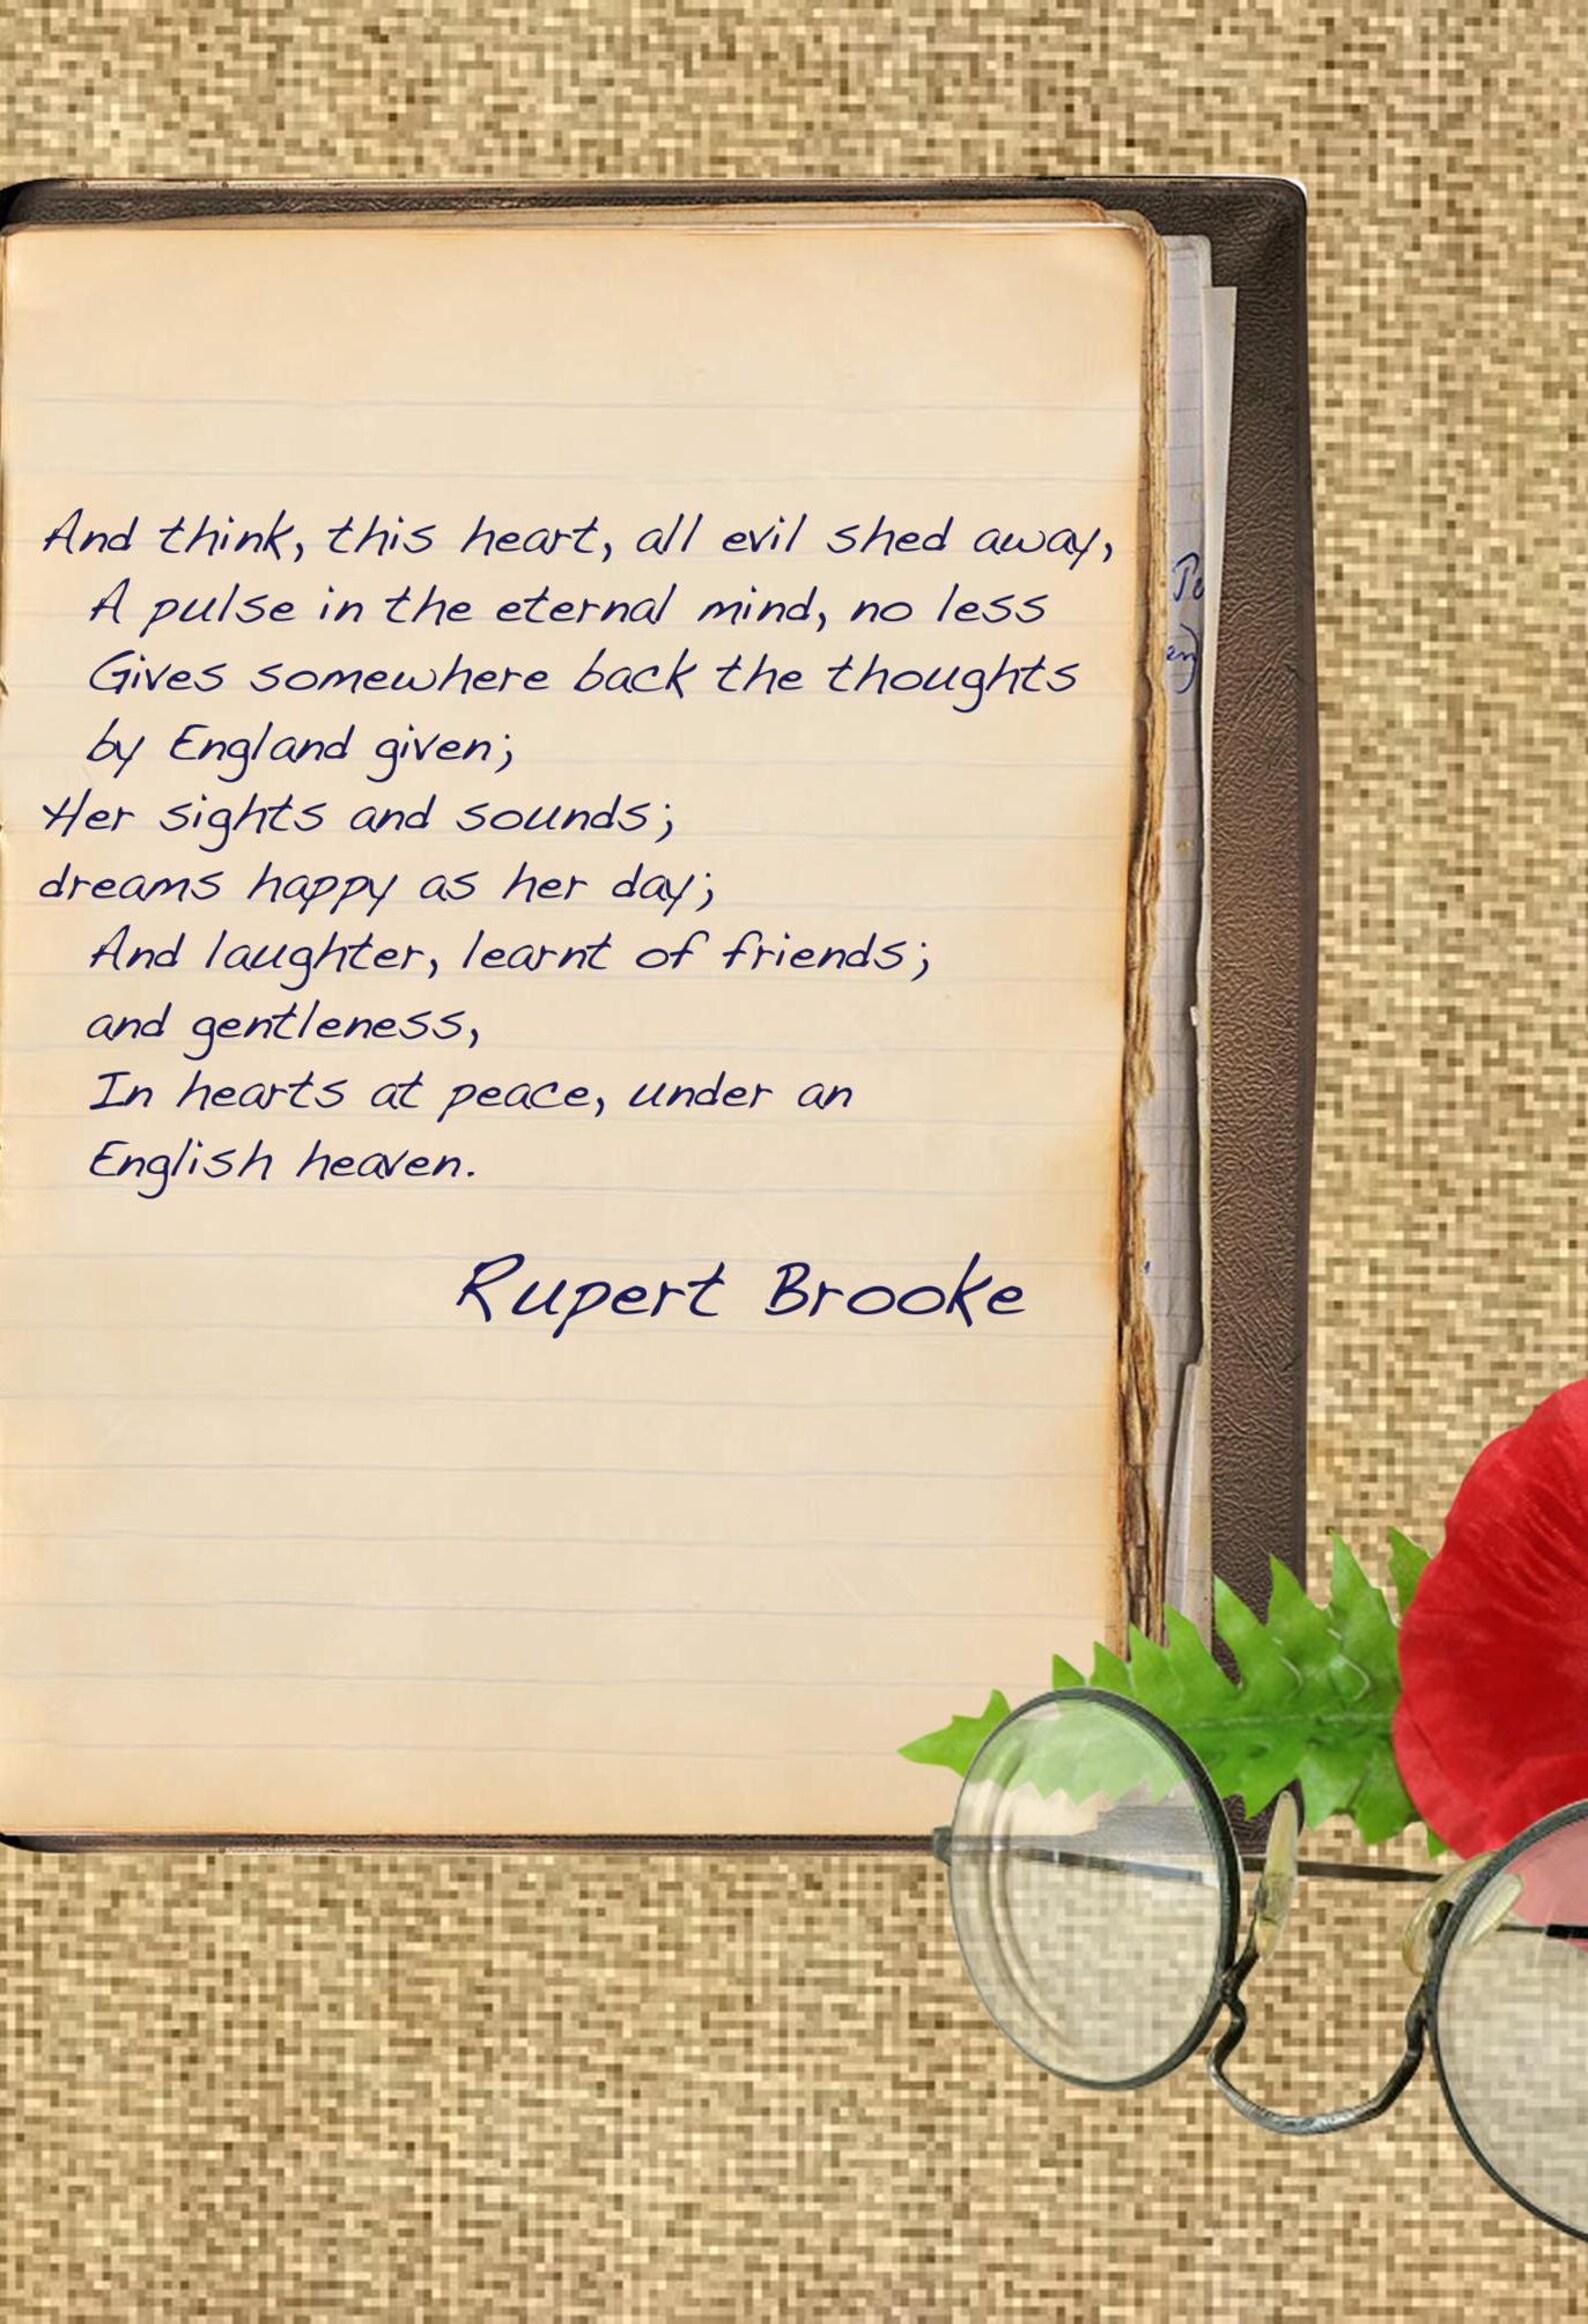 And think, this heart, all evil shed away,
A pulse in the eternal mind, no less
Gives somewhere back the thoughts
by England given;
Her sights and sounds;
dreams happy as her day;
And laughter, learnt of friends;
and gentleness,
In hearts at peace, under an
English heaven.
Rupert Brooke